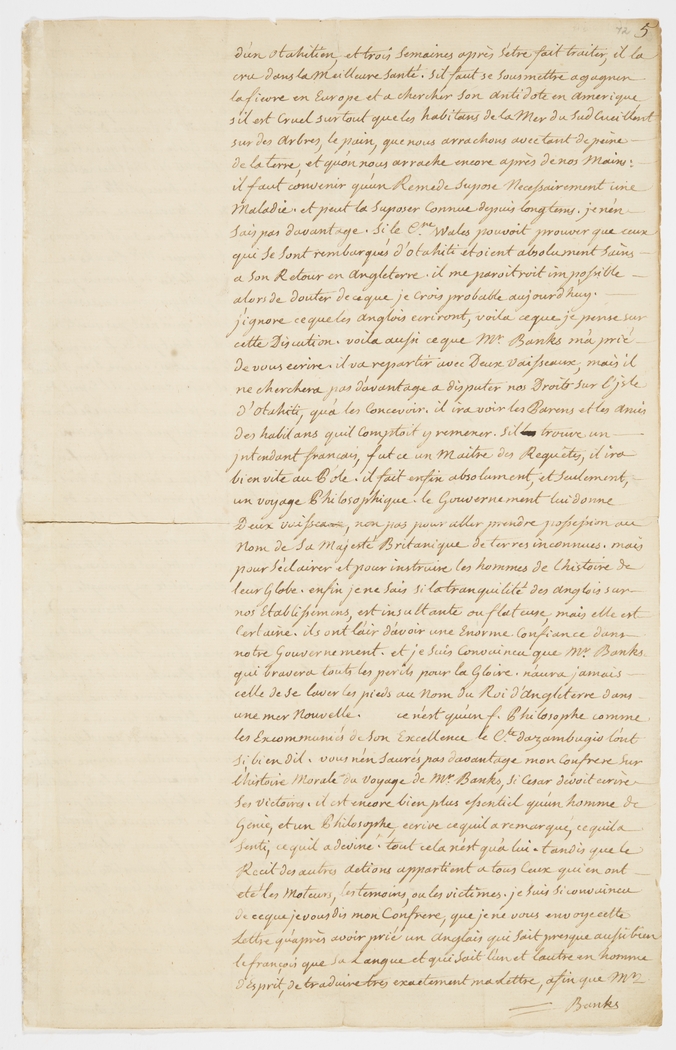 72 5
d'un otahitien, et trois Semaines après S'etre fait traiter, il la
cru dans la Meilleure Santé. Sil faut se Sousmettre a gagner
la fievre en Europe et a chercher Son antidote en amerique
sil est Cruel sur tout que les habitans de la Mer du Sud Cueillent
sur des arbres, le pain, que nous arrachons avec tant de peine
de la terre, et qu'on nous arrache encore après de nos Mains:
il faut convenir qu'un Remede Supose Necessairement une
Maladie. et peut la Suposer Connue depuis longtems. je n'en
Sais pas davantage. Si le C.ne Wales pouvoit prouver que ceux
qui se Sont rembarqués d'otahiti etoient absolument Sains
a Son Retour en angleterre. il me paroitroit impossible
alors de douter de ce que je Crois probable aujourdhuy.
j'ignore ce que les anglois ecriront, voila ce que je pense sur
cette Discution. voila aussi ce que Mr Banks m'a prié
de vous ecrire. il va repartir avec Deux Vaisseaux, mais il
ne cherchera pas davantage a disputer nos Droits sur l'jsle
d'otahiti, qu'a les Concevoir. il ira voir les Parens et les amis
des habitans quil Comptoit y remener. Sil trouve un
jntendant francais, fut ce un Maitre des Requêtes, il ira
bien vite au Pôle. il fait enfin absolument, et Seulement,
un voyage Philosophique. le Gouvernement lui donne
Deux vaisseaux, non pas pour aller prendre possession au
Nom de Sa Majesté Britanique de terres inconnues. mais
pour S'éclairer et pour instruire les hommes de l'histoire de
leur Globe. enfin je ne Sais si la tranquilité des anglois sur
nos Etablissemens, est insultante ou flateuse, mais elle est
Certaine. ils ont l'air d'avoir une Enorme Confiance dans
notre Gouvernement. et je Suis Convaincu que Mr Banks
qui bravera touts les perils pour la Gloire. n'aura jamais
celle de Se laver les pieds au Nom du Roi d'Angleterre dans
une mer Nouvelle. ce n'est qu'un f. Philosophe comme
les Excommuniés de Son Excellence le C.te dazambugio l'ont
si bien dit. vous n'en Saurés pas davantage mon Confrere Sur
l'histoire Morale du Voyage de Mr Banks, Si Cesar devoit ecrire
Ses victoires. il est encore bien plus essentiel qu'un homme de
Génie, et un Philosophe, ecrive ce quil a remarqué, ce quil a
Senti, ce quil a deviné. tout cela n'est qu'a lui. tandis que le
Récit des autres actions appartient a tous Ceux qui en ont
eté les Moteurs, les temoins, ou les victimes. je Suis Si convaincu
de ce que je vous dis mon Confrere, que je ne vous envoye cette
Lettre qu'après avoir prié un Anglais qui Sait presque aussi bien
le françois que Sa Langue et qui Sait l'un et l'autre en homme
d'Esprit, de traduire très exactement ma Lettre, afin que Mr
Banks